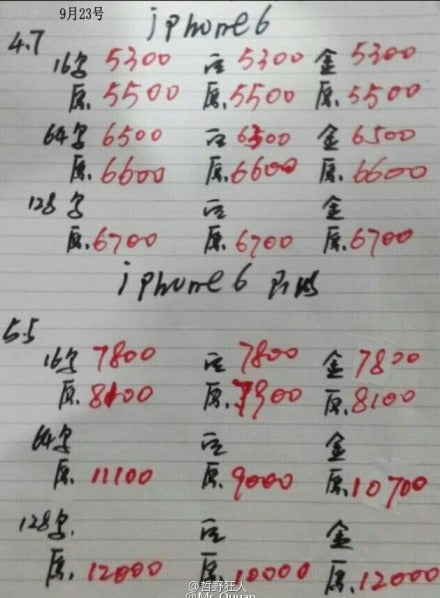 9月23号
iphone6
4.7
16字 5300 5300 金 5300
原.5500 原.5500 原.5500
64字 6500 6500 金 6500
原.6600 原.6600 原.6600
128字 金
原.6700 原.6700 原.6700
iphone6 plus
5.5
16字 7800 7800 金 7800
原.8100 原.7900 原.8100
64字 金
原.11100 原.9000 原.10700
128字 金
原.12000 原.10000 原.12000
@哲野狂人